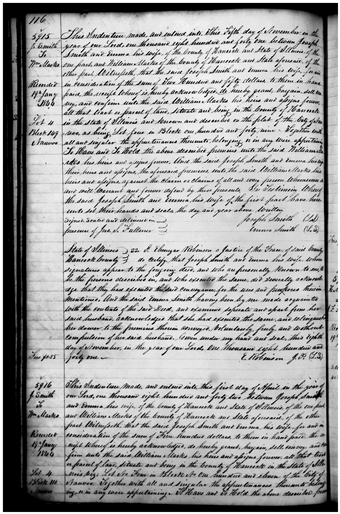 116
5915
J. Smith
To
Wm Marks
Recorded
19th Jany.
1846
Lot 4
Block 149
Nauvoo
This Indenture made, and entered into, this Fifth day of November in the
year of our Lord, one thousand eight hundred and forty one between Joseph
Smith and Emma his wife, of the County of Hancock and State of Illinois, of the
one part and William Marks of the County of Hancock and State aforesaid, of the
other part, Witnesseth, that the said Joseph Smith and Emma his wife, for and
in consideration of the sum of Two Hundred and fifty dollars to them in hand
paid, the receipt whereof is hereby acknowledged, do hereby grant, bargain, sell con-
vey, and confirm unto the said William Marks his heirs and assigns forever
all that tract or parcel of land, situate and being in the County of Hancock
in the State of Illinois and known and described in the plat of the City of Nau-
voo, as being Lot four in Block one hundred and forty nine. Together with
all and singular the appurtenances thereunto belonging, or in any wise appertaining.
To Have and To Hold the above described premises unto the said William Ma-
rks his heirs and assigns forever. And the said Joseph Smith and Emma his wife
heirs, and assigns, the aforesaid premises unto the said William Marks his
heirs and assigns, against the claim or claims of all and every person whomsoever
and will Warrant and forever defend by these presents. In Testimony Whereof
the said Joseph Smith and Emma his wife, of the first part have here-
unto set their hands and seals the day and year above written
signed sealed and delivered in
presence of
Joseph Smith (LS)
Emma Smith (LS)
State of Illinois
Hancock County
I, Ebenezer Robinson a Justice of the Peace of said County
do certify that Joseph Smith and Emma his wife whose
signatures appears to the foregoing deed, and who are personally known to me to
be the persons described in and who executed the same, did severally acknowledge
that they had executed the said conveyance for the uses and purposes therein
mentioned. And the said Emma Smith having been by me made acquainted
with the contents of the said deed, and examined separate and apart from her
said husband, acknowledged that she had executed the same, and relinquished
her dower to the premises therein conveyed, voluntarily, freely and without
compulsion of her said husband. Given under my hand and seal, this fifth
day of November, in the year of our Lord, one thousand eight hundred and
forty one
E. Robinson J.P. (LS)
5916
J. Smith
To
Wm Marks
Recorded
19th Jany
1846
Lot 4
Block 111
Nauvoo
This Indenture made, and entered into this first day of April in the year of
our Lord, one thousand eight hundred and forty two between Joseph Smith
and Emma his wife, of the County of Hancock and State of Illinois of the one part
and William Marks of the County of Hancock and State aforesaid, of the other
part, Witnesseth that the said Joseph Smith and Emma his wife, for and in
consideration of the sum of Five Hundred dollars to them in hand paid, the re-
ceipt whereof is hereby acknowledged, do hereby grant, bargain, sell convey and con-
firm unto the said William Marks his heirs and assigns forever, all that tract
or parcel of land, situate and being in the County of Hancock in the State of Illi-
Nauvoo. Together with all and singular the appurtenances thereunto belong-
ing, or in any wise appertaining. To Have and to Hold the above described prem-